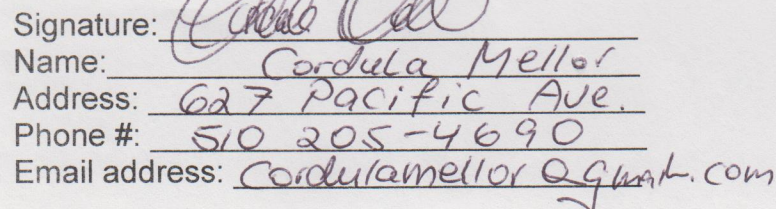 Signature:
Name: Cordula Mellor
Address: 627 Pacific Ave.
Phone #: 510 205-4690
Email address: Cordulamellor@gmail.com